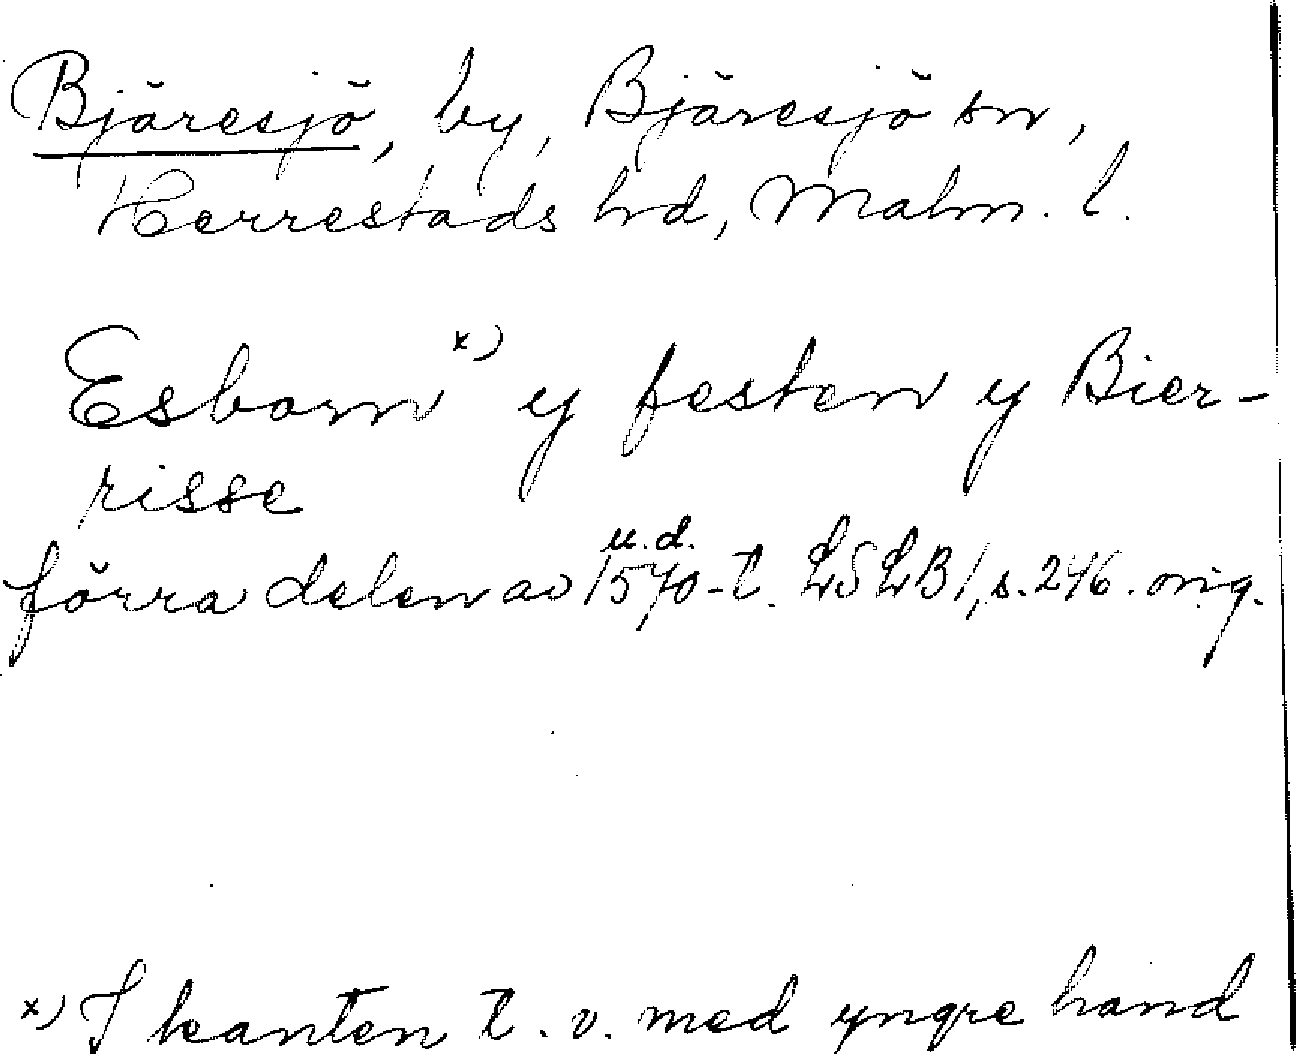 Bjäresjö, by, Bjäresjö sn,
Herrestads hrd, Malm. l.
Esborn x) y festen y Bier-
risse
u.d.
förra delen av 1570-t. LSLB 1, s. 246. orig.
x) I kanten t. v. med yngre hand